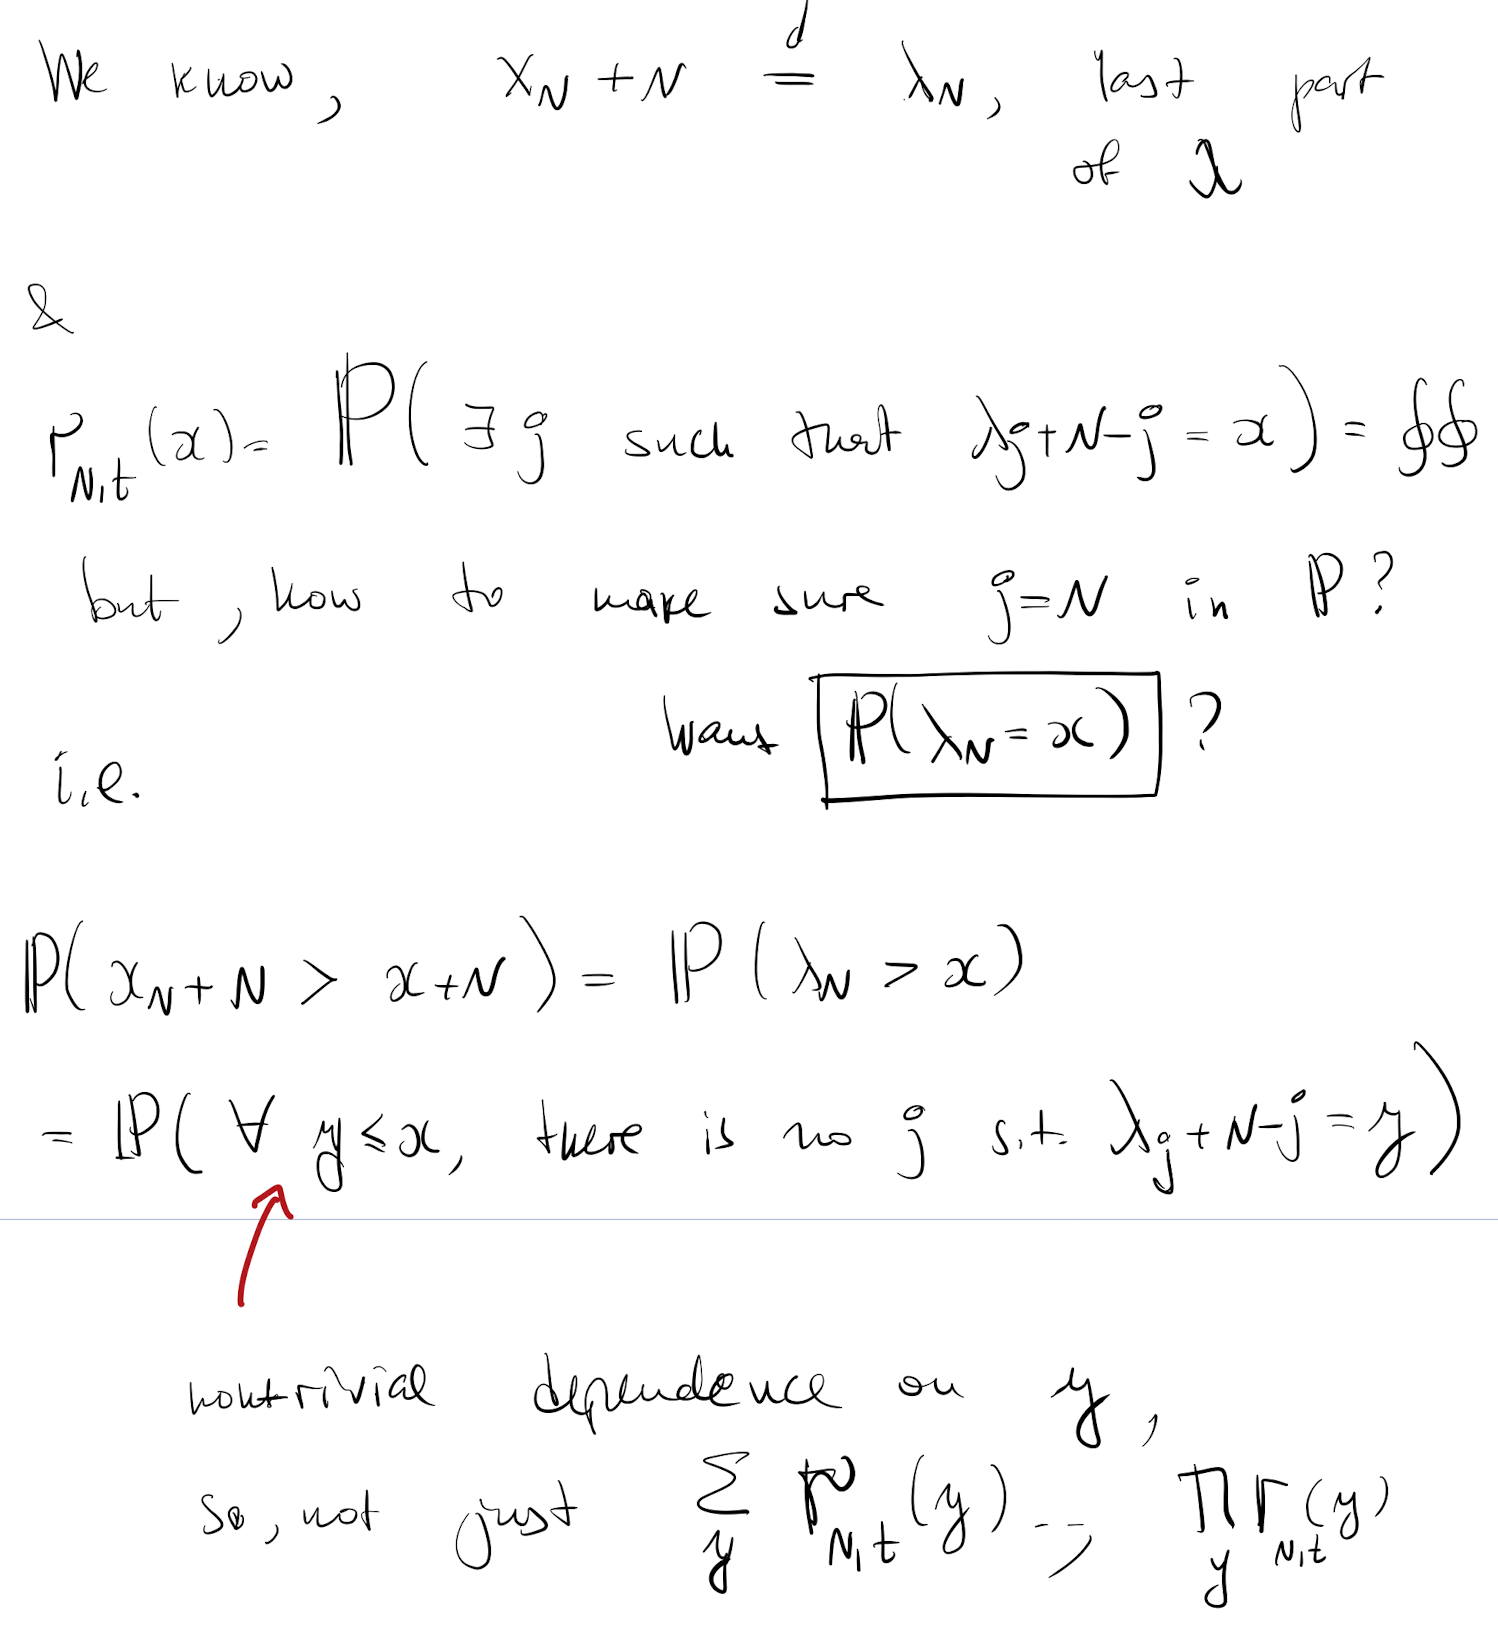 We know, x_N + N =^d λ_N, last part
of λ
&
ρ_{N,t}(x) = ℙ( ∃ j such that λ_j + N - j = x ) = ∮∮
but, how to make sure j=N in ℙ?
want ℙ(λ_N = x) ?
i.e.
ℙ( x_N + N > x + N ) = ℙ( λ_N > x )
= ℙ( ∀ y ≤ x, there is no j s.t. λ_j + N - j = y )
nontrivial dependence on y,
so, not just ∑_y ρ_{N,t}(y) ..., ∏_y ρ_{N,t}(y)